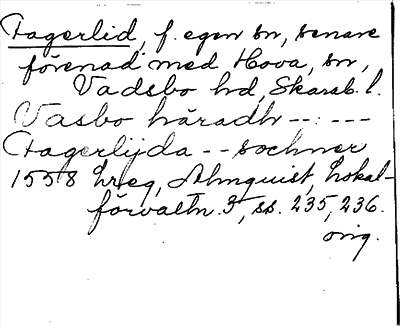 Fagerlid, f. egen sn, senare
förenad med Hova, sn,
Vadsbo hd, Skarab. l.
Vasbo häradh --:---
Fagerlijda -- sochner
1558 hreg, Almquist, Lokal-
förvaltn. 3, ss. 235, 236.
orig.